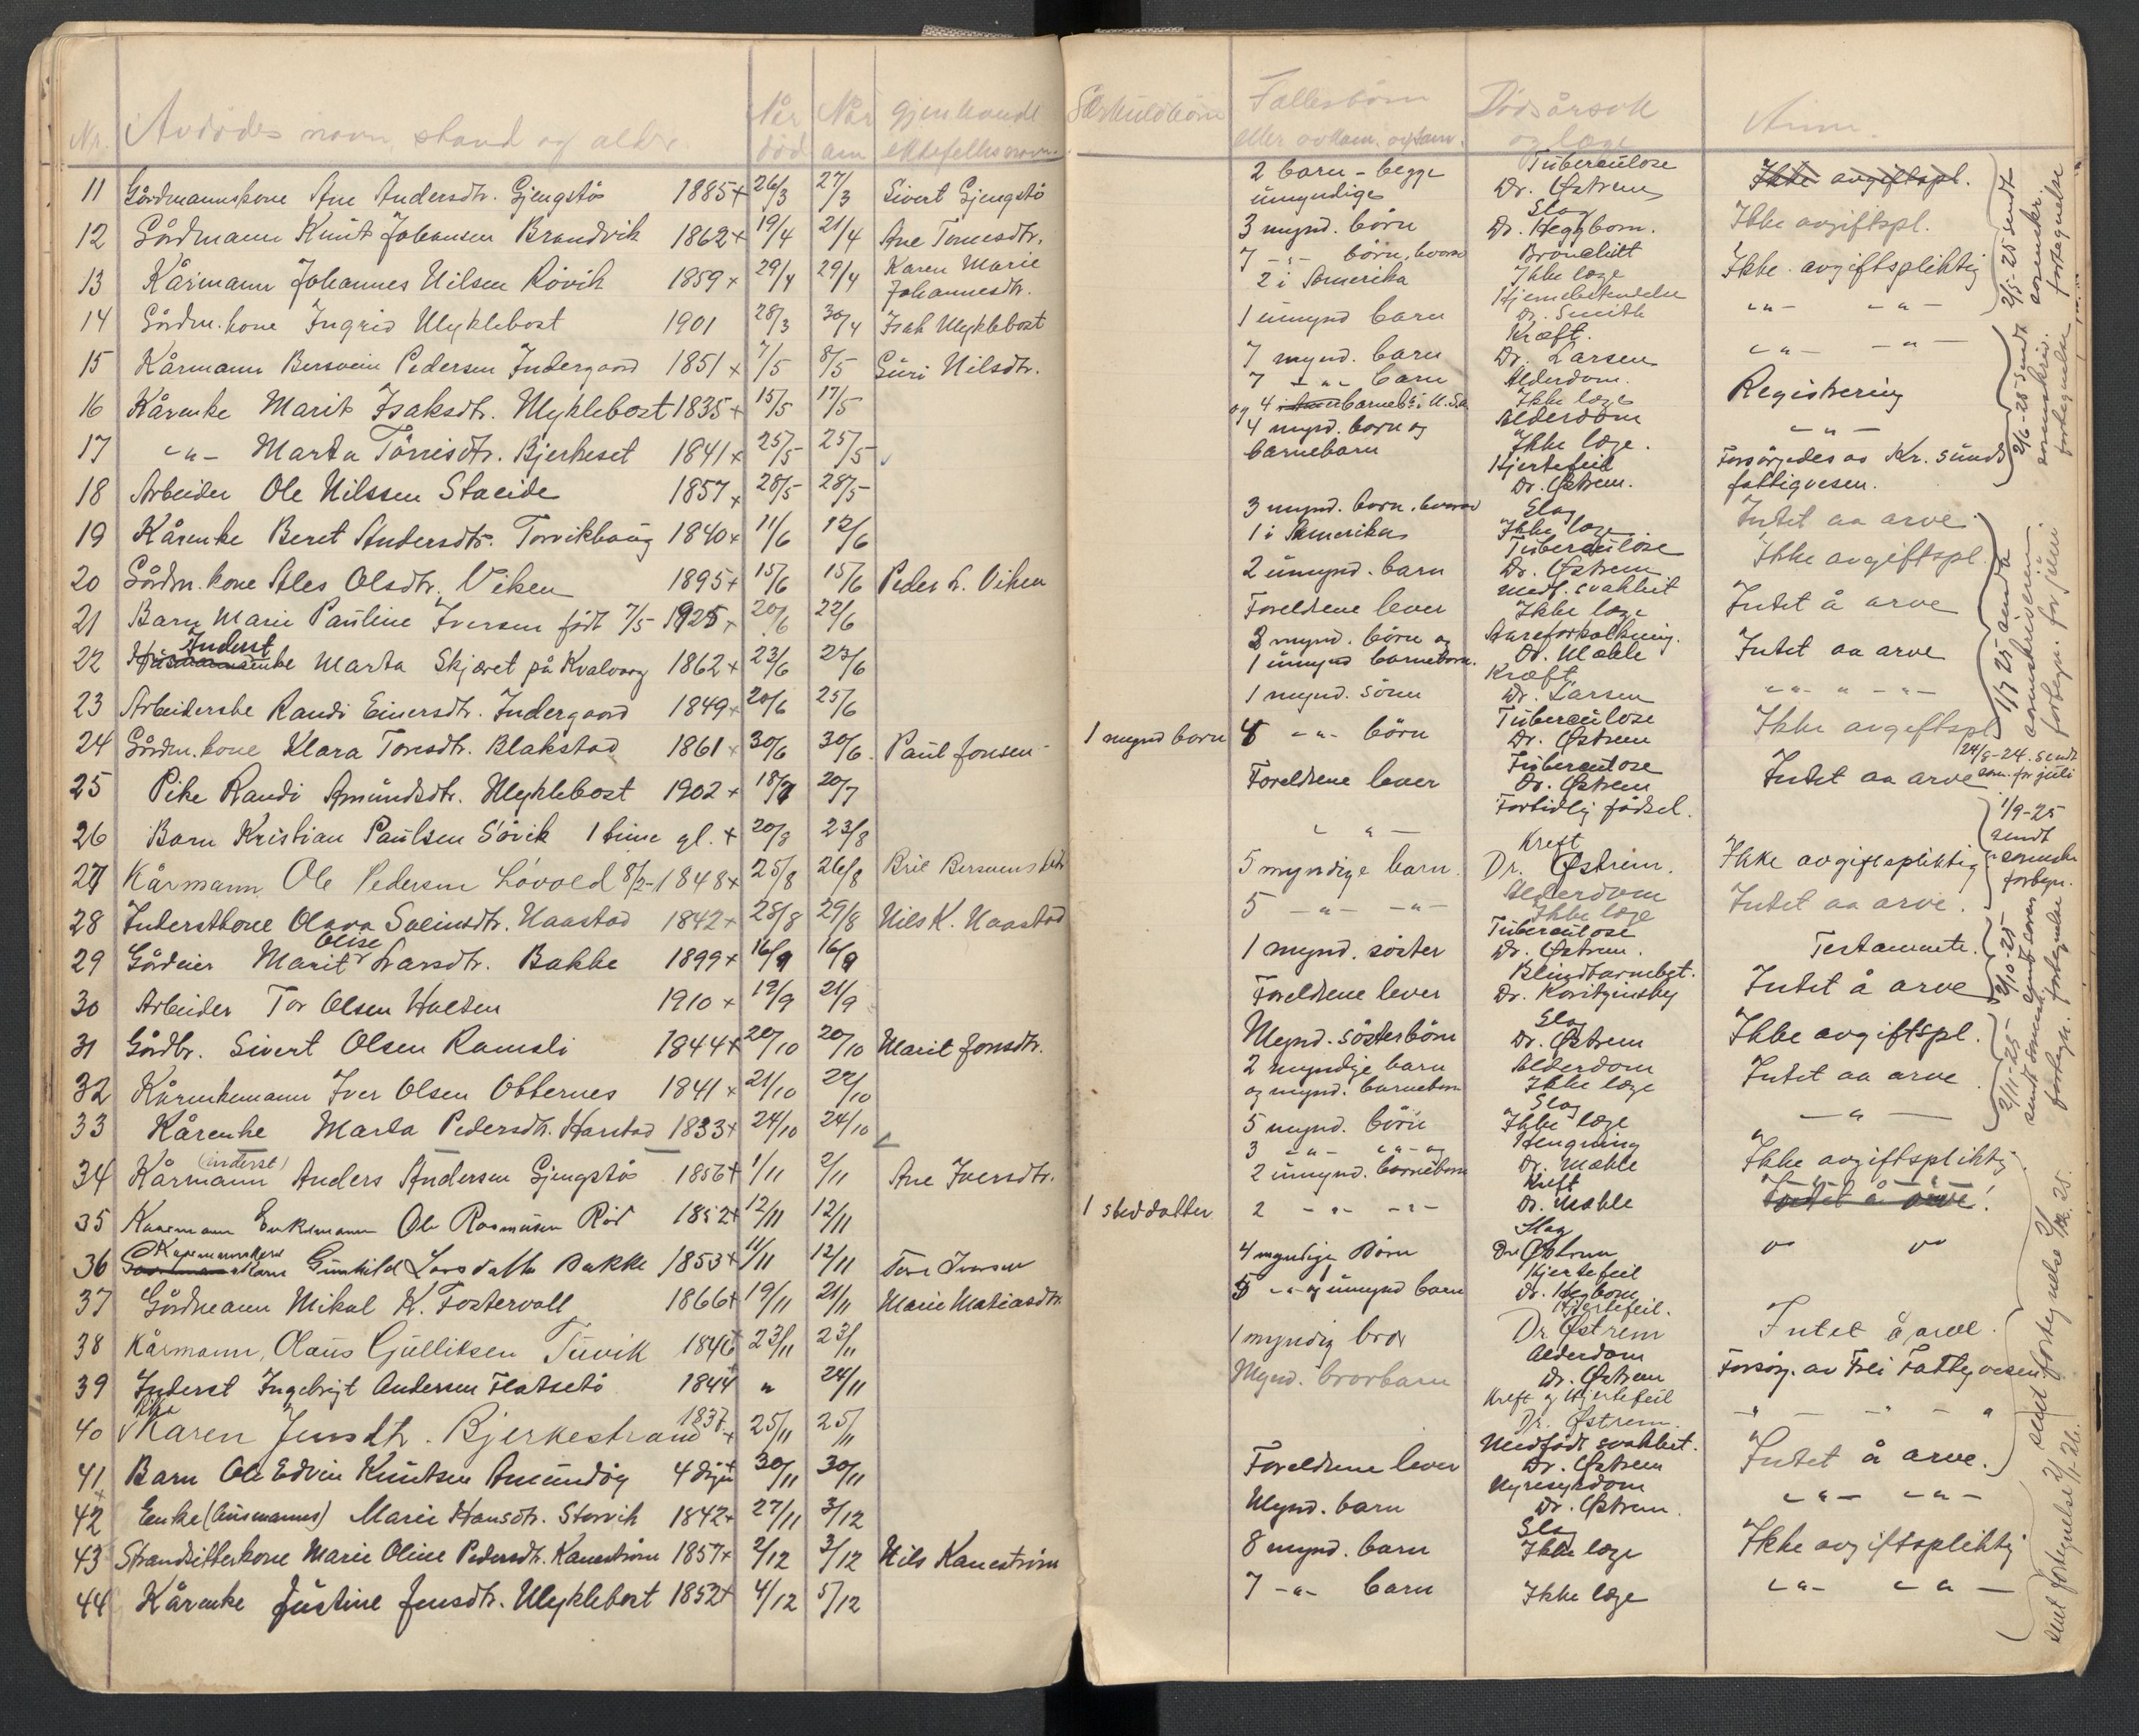 Nr. Avdødes navn, stand og alder. Når død Når an gjenlevende ektefelles navn. Særkuldbørn Fellesbørn Dødsårsak og læge Anm.
11 Gårdmannskone Ane Andersdtr. Gjengstø 1885+ 26/3 27/3 Sivert Gjengstø 2 barn - begge umyndige Tuberculose Dr. Østrem Ikke avgiftspl.
12 Gårdmann Knut Johansen Brandvik 1862+ 19/4 21/4 Ane Tomesdtr. 3 mynd. börn Slag Dr. Heggbom. Ikke avgiftspl.
13 Kårmann Johannes Nilsen Rövik 1859+ 29/4 29/4 Karen Marie Johannesdtr. 7 -"- börn, hvorav 2 i Amerika Bronchitt Ikke læge Ikke avgiftspliktig
14 Gårdm.kone Ingrid Myklebost 1901 28/3 30/4 Isak Myklebost 1 umynd barn Dr. Smith -"- -"-
15 Kårmann Bersvein Pedersen Indergaard 1851+ 7/5 8/5 Guri Nilsdtr. 7 mynd. barn Kræft. Dr. Larsen -"- -"-
16 Kårenke Marit Isaksdtr. Myklebost 1835+ 15/5 17/5 7 -"- barn og 4 barneb. i U.S.A. Alderdom. Ikke læge Registrering
17 -"- Marta Törrisdtr. Bjerkeset 1841+ 25/5 25/5 4 mynd. born og barnebarn Alderdom Ikke læge. -"-
18 Arbeider Ole Nilssen Staeide 1857+ 28/5 28/5 Hjertefeil Dr. Østrem. Forsørgedes av Kr. sunds fattigvesen.
19 Kårenke Beret Andersdtr. Torvikhaug 1840+ 11/6 12/6 3 mynd. barn, hvorav 1 i Amerika Slag Ikke læge Intet aa arve
20 Gårdm.kone Ales Olsdtr. Viken 1895+ 15/6 15/6 Peder L. Viken 2 umynd. barn Tuberculose Dr. Østrem Ikke avgiftspl.
21 Barn Marie Pauline Iversen født 7/5- 1925+ 20/6 22/6 Foreldrene lever Medf. svakheit Ikke læge Intet å arve
22 Inderst Husmannsenke Marta Skjæret på Kvalvaag 1862+ 23/6 23/6 3 mynd. börn og 1 umynd barnebarn. Aareforkalkning. Dr. Mæhle Intet aa arve
23 Arbeiderske Randi Einersdtr. Indergaard 1849+ 20/6 25/6 1 mynd. sönn Kræft Dr. Larsen -"- " -"-
24 Gårdm.kone Klara Toresdtr. Blakstad 1861+ 30/6 30/6 Paul Jonsen 1 mynd barn 4 -"- börn Tuberculose Dr. Østrem Ikke avgiftspl
25 Pike Randi Amundsdtr. Myklebost 1902+ 18/7 20/7 Foreldrene lever Tuberculose Dr. Østrem Intet aa arve
26 Barn Kristian Paulsen Sövik 1 time gl. + 20/8 23/8 " " - Fortidlig födsel.
27 Kårmann Ole Pedersen Lövold 8/2-1848+ 25/8 26/8 Brit Bersvensdtr 5 myndige barn. Kreft Dr. Østrem. Ikke avgiftspliktig
28 Inderstkone Olava Sveinsdtr. Naastad 1842+ 28/8 29/8 Nils K. Naastad 5 -"- -"- Alderdom Ikke læge Intet aa arve.
29 Gårdeier Marit Olise Larsdtr. Bakke 1899+ 16/9 16/9 1 mynd. söster Tuberculose Dr. Østrem. Testamente.
30 Arbeider Tor Olsen Halsen 1910+ 19/9 21/9 Foreldrene lever Blindtarmbet. Intet å arve
31 Gårdbr. Sivert Olsen Ramsli 1844+ 20/10 20/10 Marit Jonsdtr. Mynd. sösterbörn Slag Dr. Østrem Ikke avgiftspl.
32 Kårenkemann Iver Olsen Otternes 1841+ 21/10 22/10 2 myndige barn og mynd. barnebarn Alderdom Ikke læge Intet aa arve
33 Kårenke Marta Pedersdtr. Harstad 1833+ 24/10 24/10 5 mynd. börn Slag Ikke læge - " -
34 Kårmann (inderst) Anders Andersen Gjengstø 1856+ 1/11 2/11 Ane Iversdtr. 3 -"- -"- og 2 umynd. barnebarn Hengning Dr. Mæhle Ikke avgiftspliktig
35 Kaarmann Enkemann Ole Rasmusen Röd 1852+ 12/11 12/11 1 steddatter 2 -"- -"- Kreft Dr. Mæhle Intet å arve!
36 Kaarmannskone Gunhild Larsdatter Bakke 1853+ 11/11 12/11 Tore Iversen 4 myndige Börn Slag Dr Østrem " "
37 Gårdmann Mikal K. Fostervoll 1866+ 19/11 21/11 Marie Matiasdtr. 5 -"- og 1 umynd barn Hjertefeil Dr. Hegbom
38 Kårmann, Olaus Gulliksen Tuvik 1846+ 23/11 23/11 1 myndig bror Hjertefeil. Dr Østrem Intet å arve.
39 Inderst Ingebrigt Andersen Flatsetö 1844+ " 24/11 Mynd. brorbarn Alderdom Dr. Østrem Forsørg. av Frei Fattigvesen
40 Pike Karen Jensdtr. Bjerkestrand 1837+ 25/11 25/11 Kreft og Hjertefeil Dr. Østrem. -" - " - "
41 Barn Ole Edvin Knutsen Amundøy 4 dgr + 30/11 30/11 Foreldrene lever Medfödt svakheit. Dr. Østrem Intet å arve.
42 Enke (husmanns) Marie Hansdtr. Storvik 1842+ 27/11 3/12 Mynd. barn Nyresykdom Dr. Østrem. -"- -"-
43 Strandsitterkone Marie Oline Pedersdtr. Kaneström 1857+ 2/12 3/12 Nils Kaneström 8 mynd. barn Slag Ikke læge Ikke avgiftspliktig
44 Kårenke Justine Jensdtr. Myklebost 1852+ 4/12 5/12 7 -"- barn Ikke læge -"- -"-
2/5-25 sendt sorenskr. fortegnelse
2/6-25 sendt sorenskriv. fortegnelse
1/7 25 sendt sorenskriveren fortegn. for juni.
24/8-24. sendt sor. for juli
1/9-25 sendt sorenskr fortegn.
2/10-25 sendt soren fortegnelse
2/11-25- sendt sorenskr. fortegn.
sendt fortegnelse 2/12. 25.
sent fortegnelse 2/1-26.